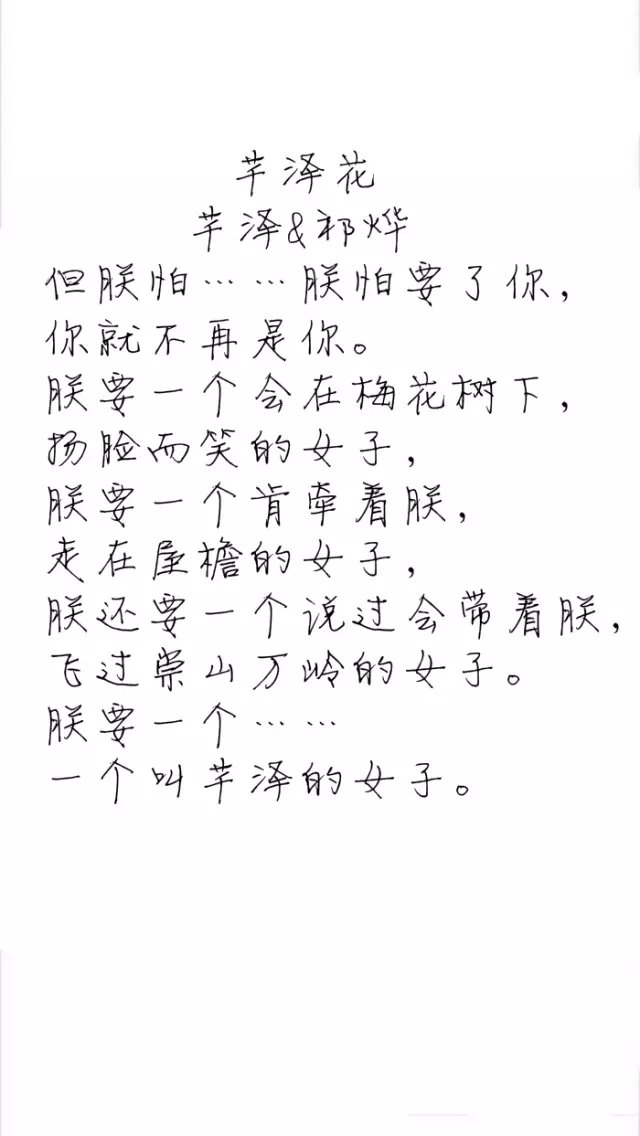 芊泽花
芊泽&祁烨
但朕怕……朕怕要了你，
你就不再是你。
朕要一个会在梅花树下，
扬脸而笑的女子，
朕要一个肯牵着朕，
走在屋檐的女子，
朕还要一个说过会带着朕，
飞过崇山万岭的女子。
朕要一个……
一个叫芊泽的女子。